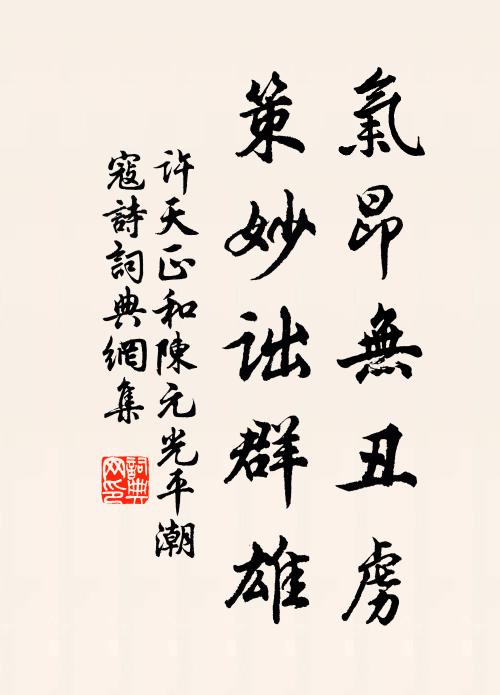 氣昂無丑虏
策妙詘群雄
許天正和陳元光平潮
寇詩詞典網集
詞典
网印